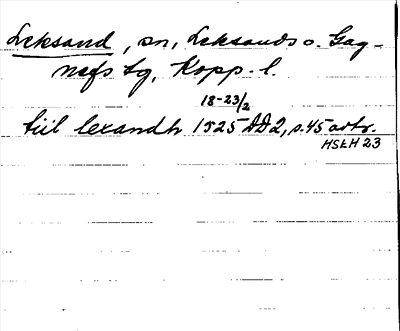 Leksand, sn, Leksands o. Gag-
nefs tg, Kopp. l.
18-23/2
tiil lexandh 1525 DD2, s.45 avtr.
HSLH 23